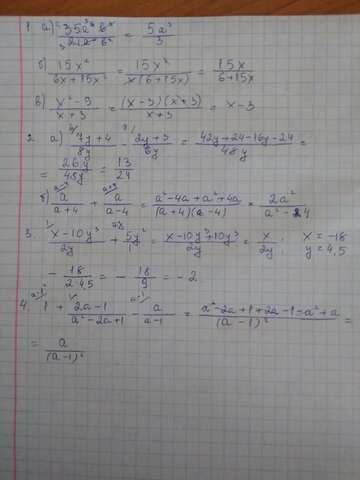 1. а) 35a³b²/21a²b² = 5a³/3
б) 15x²/6x+15x² = 15x²/x(6+15x) = 15x/6+15x
в) x²-9/x+3 = (x-3)(x+3)/x+3 = x-3
2. а) 7y+4/8y - 2y+3/6y = 42y+24-16y-24/48y =
= 26y/48y = 13/24
б) a/a+4 + a/a-4 = a²-4a+a²+4a/(a+4)(a-4) = 2a²/a²-24
3. x-10y³/2y + 5y²/1 = x-10y³+10y³/2y = x/2y x = -18
y = 4,5
- 18/2·4,5 = - 18/9 = -2
4. 1 + 2a-1/a²-2a+1 - a/a-1 = a²-2a+1+2a-1-a²+a/(a-1)² =
= a/(a-1)²